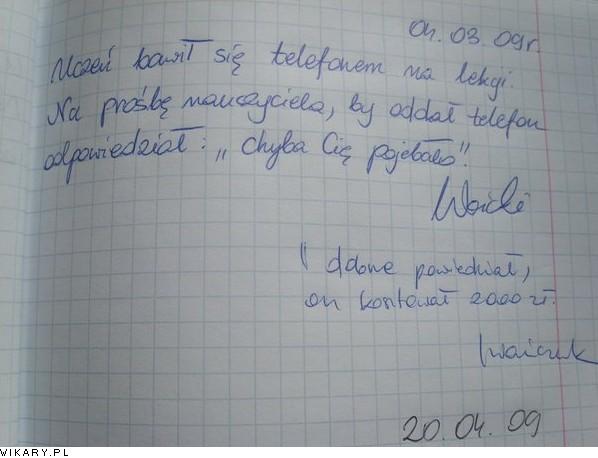 04.03.09r.
Uczeń bawił się telefonem na lekcji.
Na prośbę nauczyciela, by oddał telefon
odpowiedział: „chyba Cię pojebało".
powiedział,
on kosztował 2000 zł.
20.04.09
WIKARY.PL